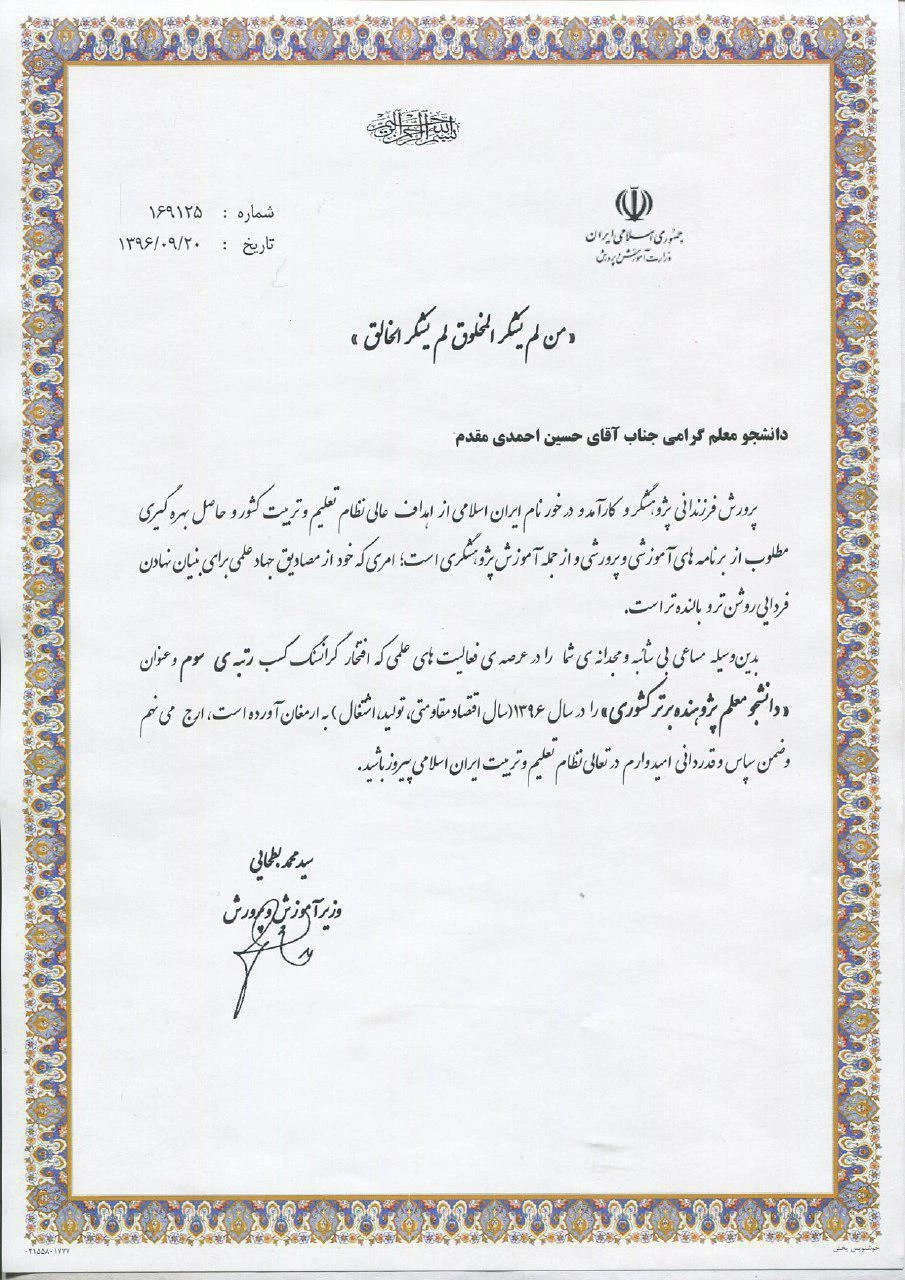 بسم الله الرحمن الرحیم
جمهوری اسلامی ایران
وزارت آموزش و پرورش
شماره : ۱۶۹۱۲۵
تاریخ : ۱۳۹۶/۰۹/۲۰
«من لم یشکر المخلوق لم یشکر الخالق»
دانشجو معلم گرامی جناب آقای حسین احمدی مقدم
پرورش فرزندانی پژوهشگر و کارآمد و در خور نام ایران اسلامی از اهداف عالی نظام تعلیم و تربیت کشور و حاصل بهره گیری
مطلوب از برنامه های آموزشی و پرورشی و از جمله آموزش پژوهشگری است؛ امری که خود از مصادیق جهاد علمی برای بنیان نهادن
فردایی روشن تر و بالنده تر است.
بدین وسیله مساعی بی شائبه و مجدانه ی شما را در عرصه ی فعالیت های علمی که افتخار گرانسنگ کسب رتبه ی سوم و عنوان
«دانشجو معلم پژوهنده برتر کشوری» را در سال ۱۳۹۶(سال اقتصاد مقاومتی، تولید، اشتغال) به ارمغان آورده است، ارج می نهم
و ضمن سپاس و قدردانی امیدوارم در تعالی نظام تعلیم و تربیت ایران اسلامی پیروز باشید.
سید محمد بطحایی
وزیر آموزش و پرورش
۰۲۱۵۵۸۰۱۷۷۷
خوشنویس پخش